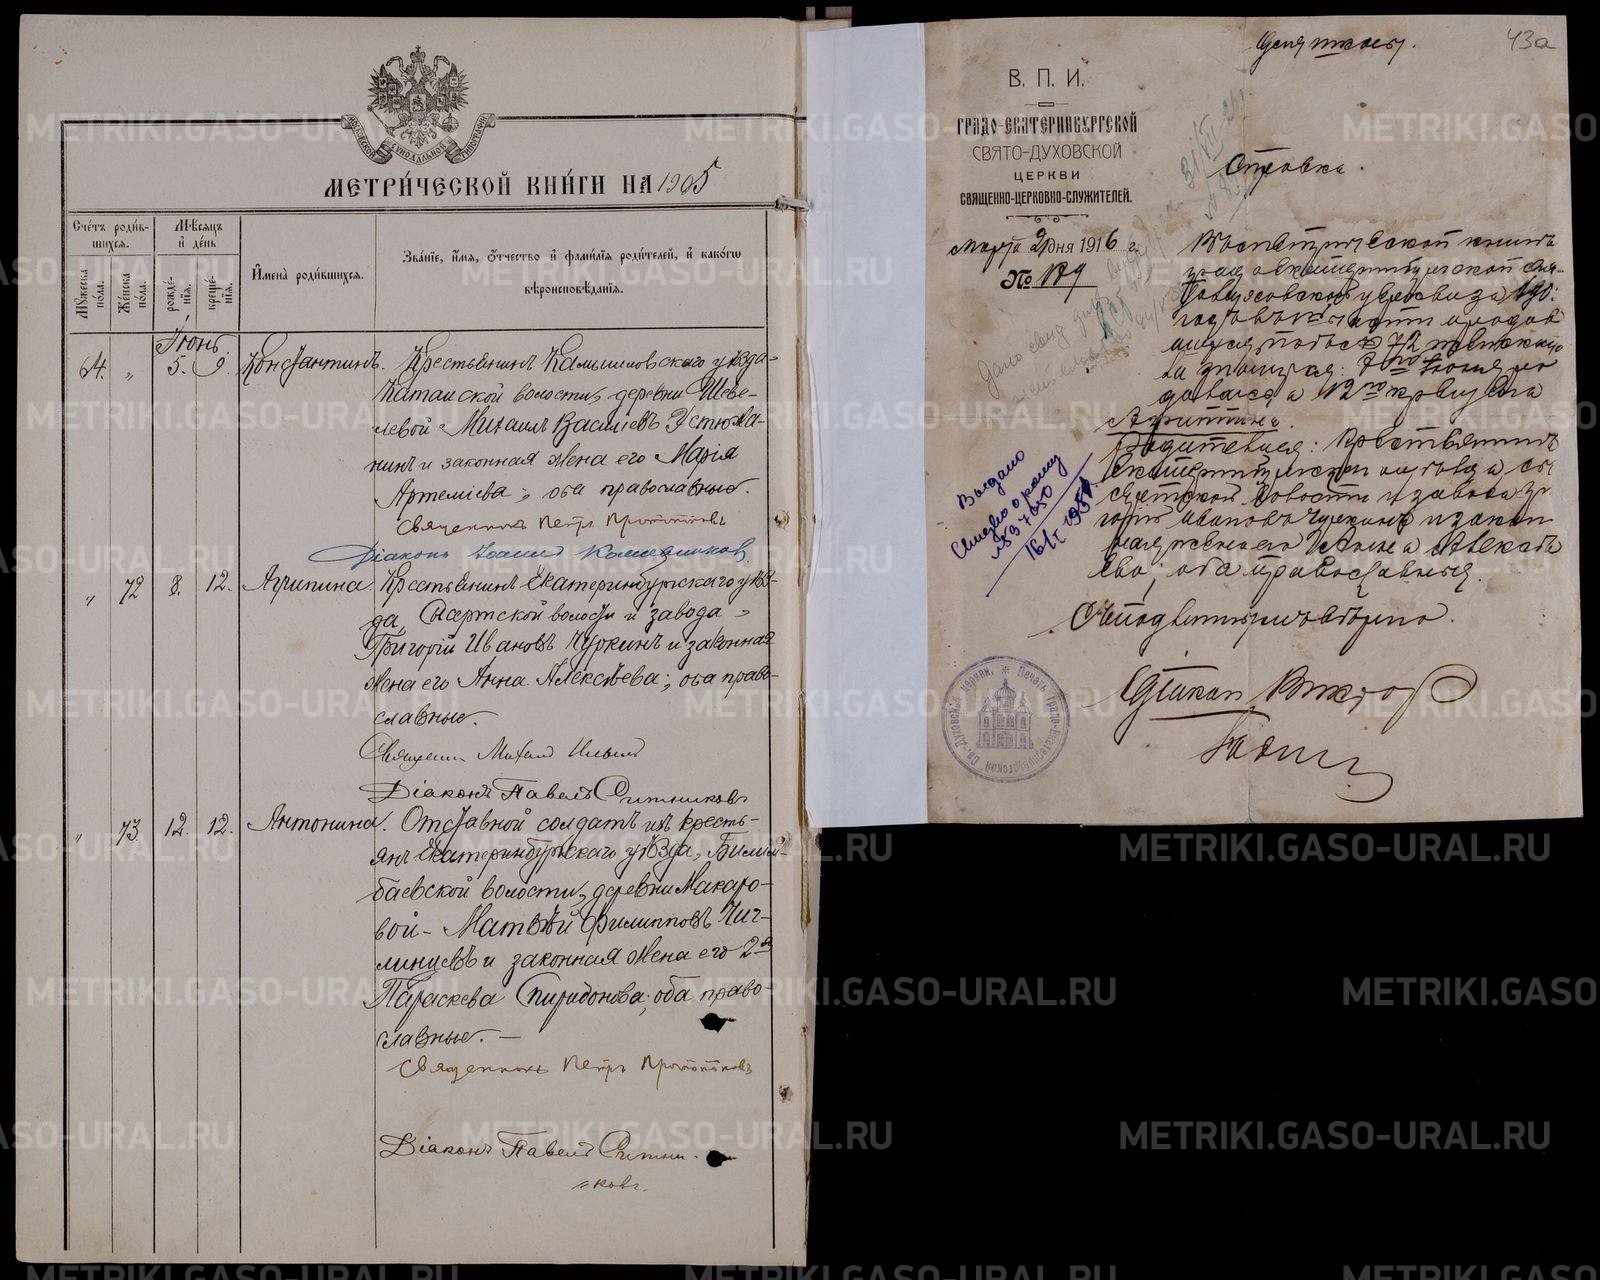 МЕТРИ́ЧЕСКОЙ КНИ́ГИ НА 1905
Счётъ роди́в-
шихся.
Мѣсяцъ
и де́нь
Мꙋжеска по́ла.
Же́нска по́ла.
рожде́-
нія.
креще́-
нія.
Имена̀ роди́вшихся.
Зва́ніе, и́мя, о́тчество и фами́лія роди́телей, и како́гѡ
вѣроисповѣ́данія.
Іюнь.
64. „ 5. 9. Константинъ. Крестьянинъ Камышловскаго уѣзда-
Катайской волости, деревни Шеве-
левой Михаилъ Васильевъ Устюжа-
нинъ и законная жена его Марія
Артеміева; оба православные.
Священникъ Петръ
Діаконъ Іоаннъ
„ 72 8. 12. Агрипина. Крестьянинъ Екатеринбургскаго уѣз-
да, Сысертской волости и завода
Григорій Ивановъ Чуркинъ и законная
жена его Анна Алексѣева; оба право-
славные.
Священ. Михаил
Діаконъ Павелъ Ситниковъ
„ 73 12. 12. Антонина. Отставной солдатъ изъ кресть-
янъ Екатеринбургскаго уѣзда, Билим-
баевской волости, деревни Макаро-
вой- Матвѣй Филипповъ Чиг-
линцевъ и законная жена его 2я
Параскева Спиридонова; оба право-
славные.
Священникъ Петръ
Діаконъ Павелъ Ситни-
ковъ.
43а
В. П. И.
ГРАДО-ЕКАТЕРИНБУРГСКОЙ
СВЯТО-ДУХОВСКОЙ
ЦЕРКВИ
СВЯЩЕННО-ЦЕРКОВНО-СЛУЖИТЕЛЕЙ.
Марта 9 дня 1916 г.
№ 179
Справка.
Въ метрической книгѣ
градо Екатеринбургской Свя-
то Духовской церкви за 1905
годъ въ части о родив
шихся, подъ № 72 женскаго
пола значится: 8го Іюня ро
дилася а 12го крещена
Агриппина.
Родители ея: Крестьянинъ
Екатеринбургскаго уѣзда Сы
сертской волости и завода Гри
горій Ивановъ Чуркинъ и закон
ная жена его Анна Алексѣ
ева; оба православные.
Діаконъ Виктор
Выдано
свид о рожд
№ 537650
16/I 1951
Печать Градо-Екатеринбургской Св.-Духовской церкви.
METRIKI.GASO-URAL.RU